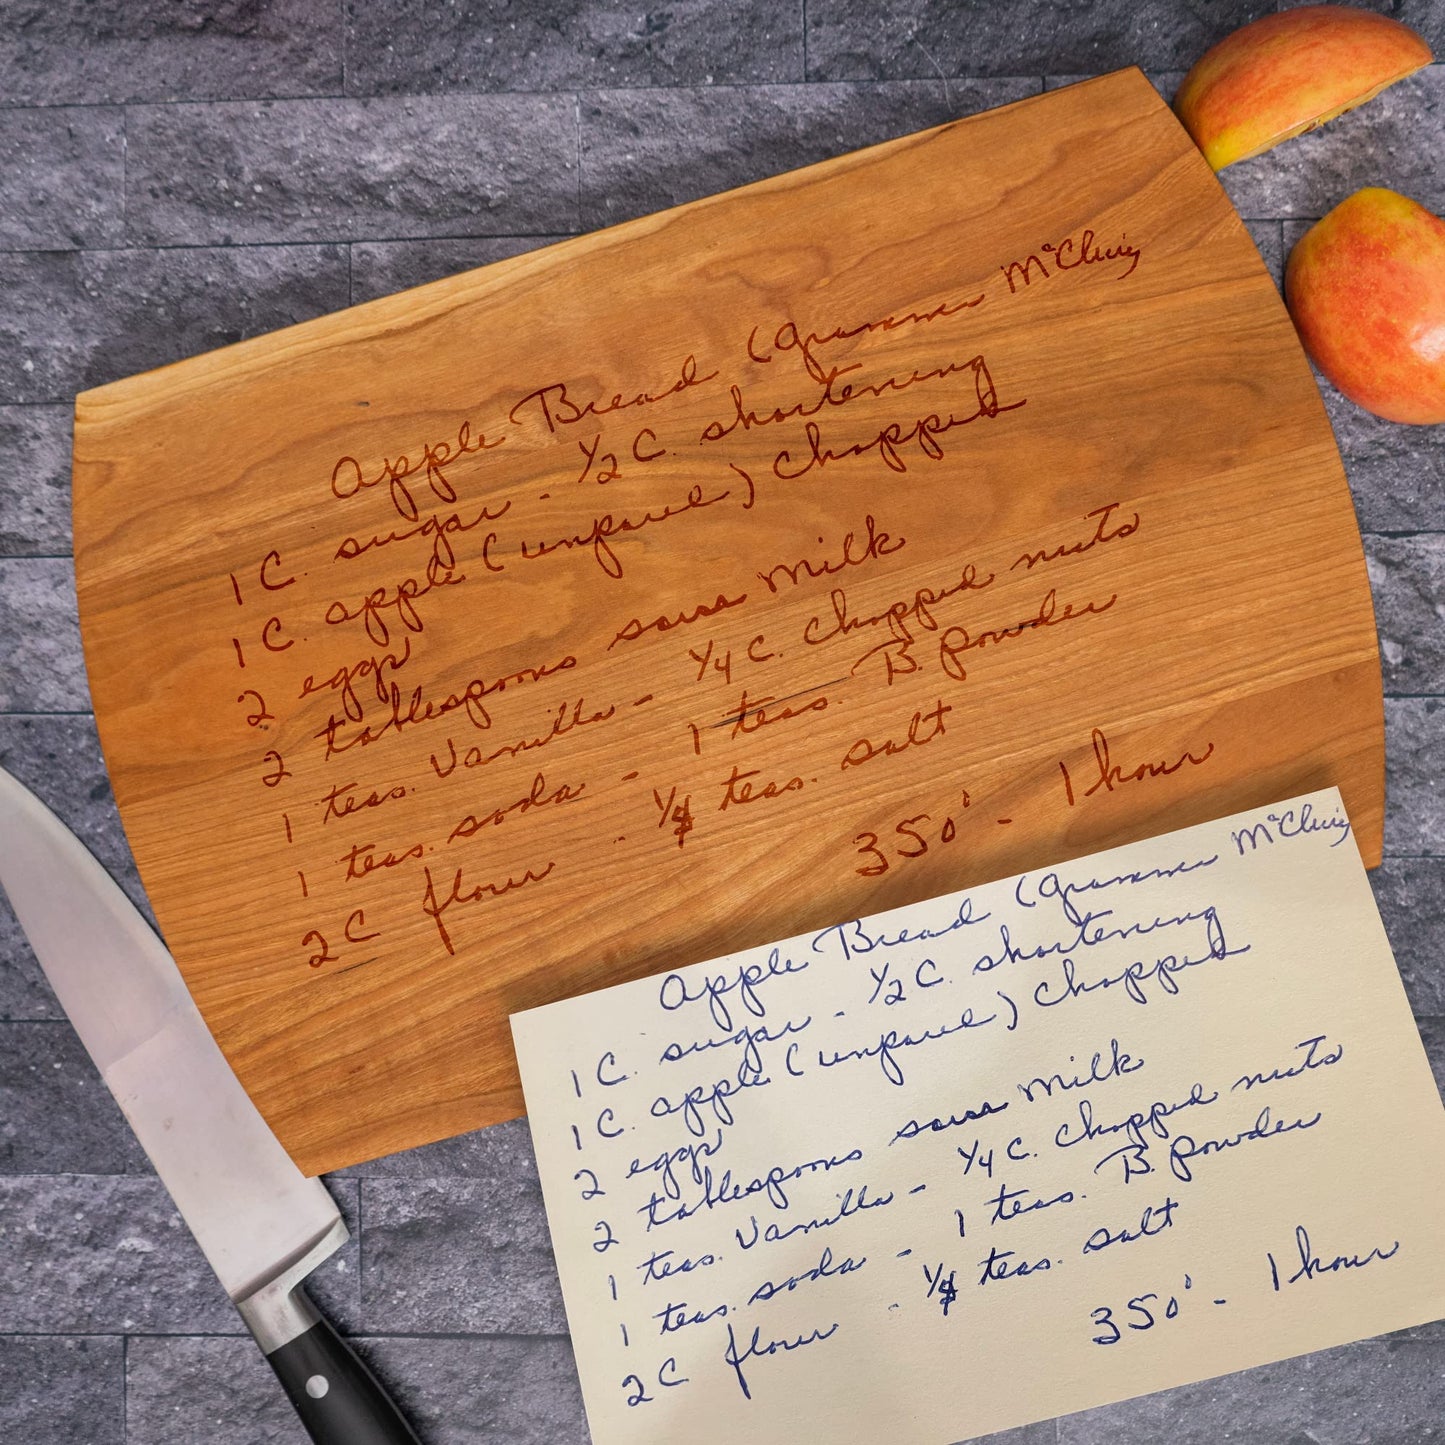 Apple Bread (Grammer McClurg
1 C. sugar - 1/2 C. shortening
1 C. apple (unpared) chopped
2 eggs
2 tablespoons sour milk
1 teas. Vanilla - 1/4 C. chopped nuts
1 teas. soda - 1 teas. B. powder
2 C flour - teas. salt
350° - 1 hour
Apple Bread (Grammer McClurg
1 C. sugar - 1/2 C. shortening
1 C. apple (unpared) chopped
2 eggs
2 tablespoons sour milk
1 teas. Vanilla - 1/4 C. chopped nuts
1 teas. soda - 1 teas. B. powder
2 C flour - teas. salt
350° - 1 hour